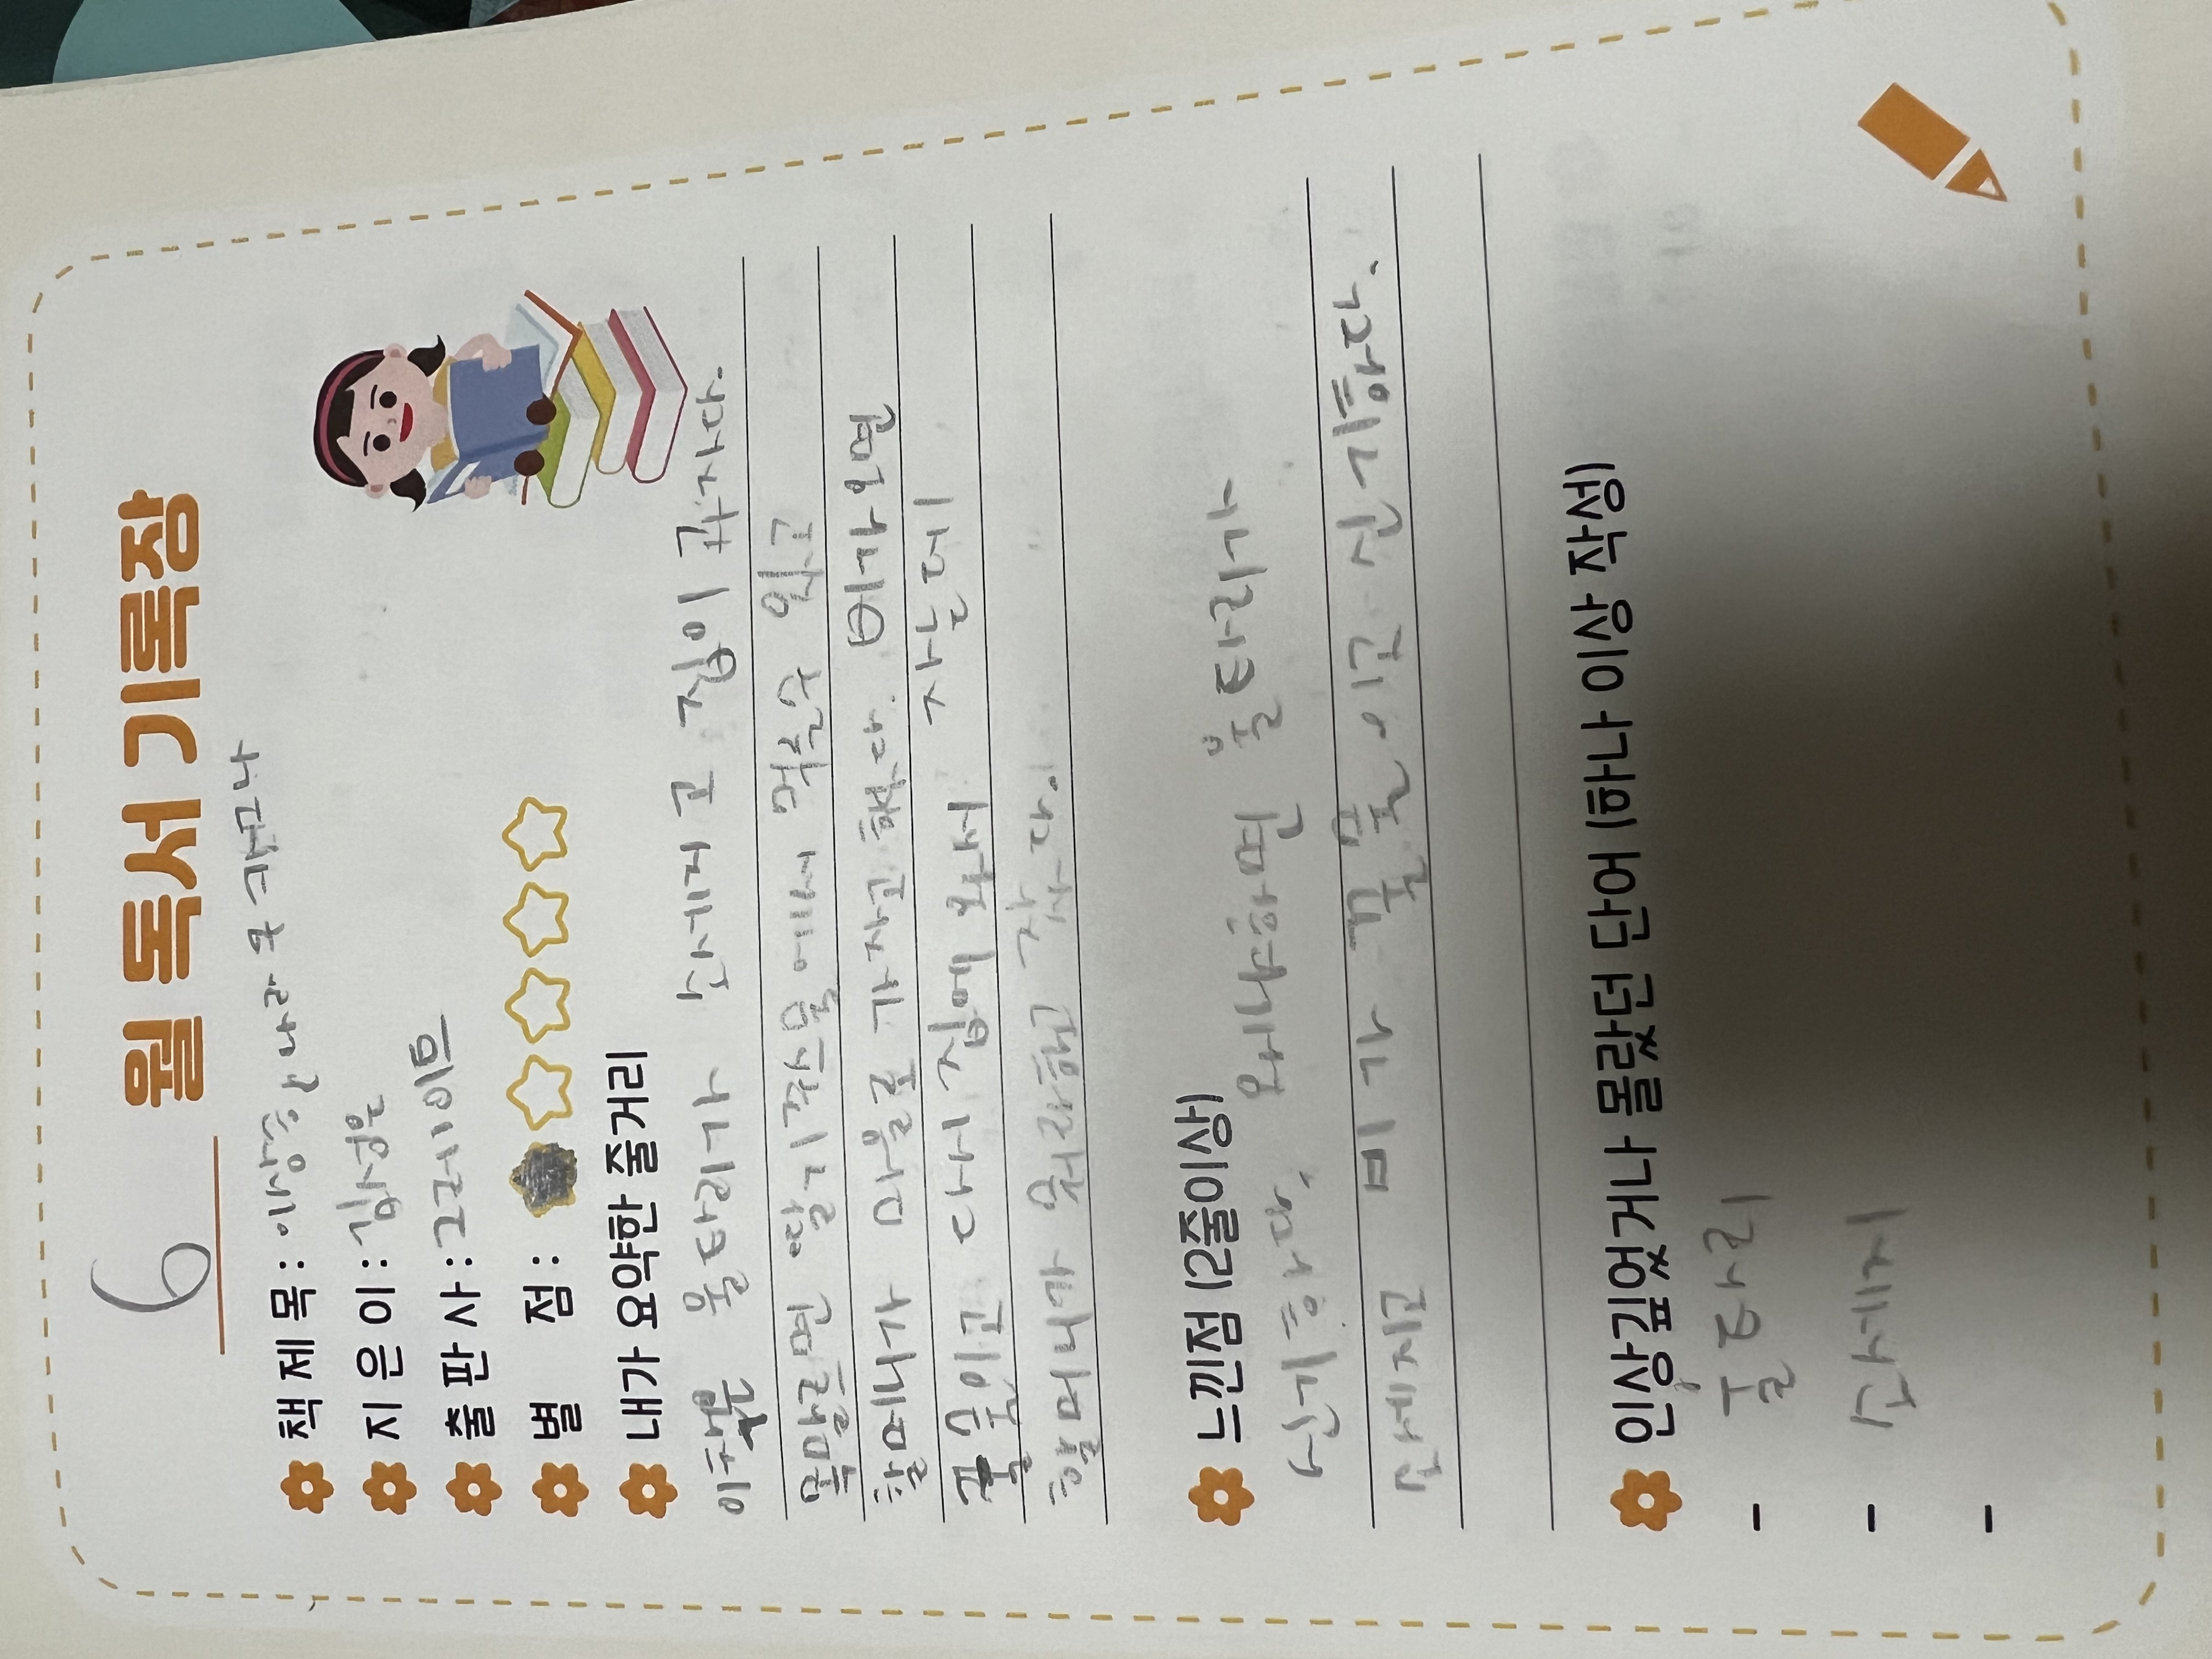 6 월 독서 기록장
책 제 목 : 이상한 나라 쿠키
지 은 이 : 김성은
출 판 사 : 그레이트
별 점 :
내가 요약한 줄거리
이책은 울타리가 소세지고 집이 과자다.
목말르면 딸기쥬스물에서 먹을수 있고
할머니가 마을로 가자고 했다. 비가오면
꿀물이고 다시 집에 와서 자는데
할머니가 뭐라하고 잤다.
느낀점 (2줄이상)
신기하다. 왜냐하면 울타리가
소세지고 비가 꿀물이고 신기하다.
인상깊었거나 몰랐던 단어 (하나 이상 작성)
- 울타리
- 소세지
-